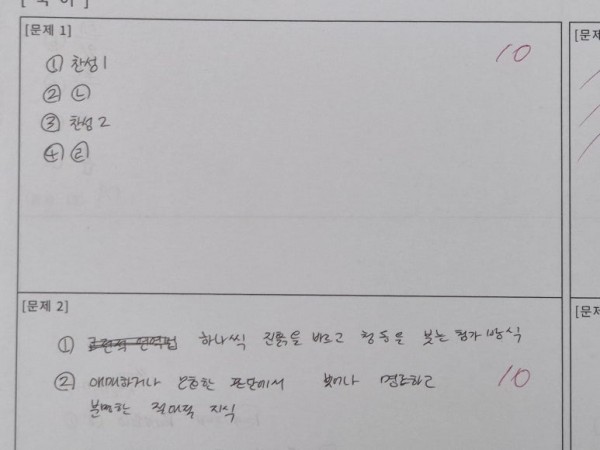 [국 어]
[문제 1]
10
① 찬성1
② ㉡
③ 찬성2
④ ㉣
[문제 2]
① 하나씩 진흙을 바르고 청동을 붓는 평가 방식
② 애매하거나 모호한 판단에서 벗어나 명료하고
10
분명한 절대적 지식
[문제
[문제